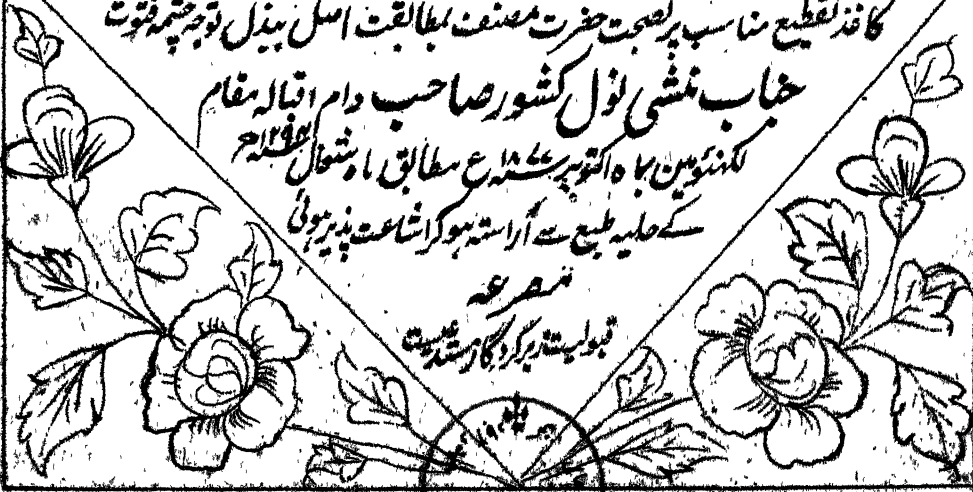 کاغذ تقطیع مناسب پر نصحت حضرت مصنف بمطابقت اصل بیذل توجہ چشمۂ فتوت
جناب منشی نول کشور صاحب دام اقبالہ مقام
لکھنؤ مین بماہ اکتوبر سنہ ۱۸۷۷ع مطابق ماہ شوال سنہ ۱۲۹۴ھ
کے حلیہ طبع سے آراستہ ہوکر اشاعت پذیر ہوئی
مصرعہ
قبولیت